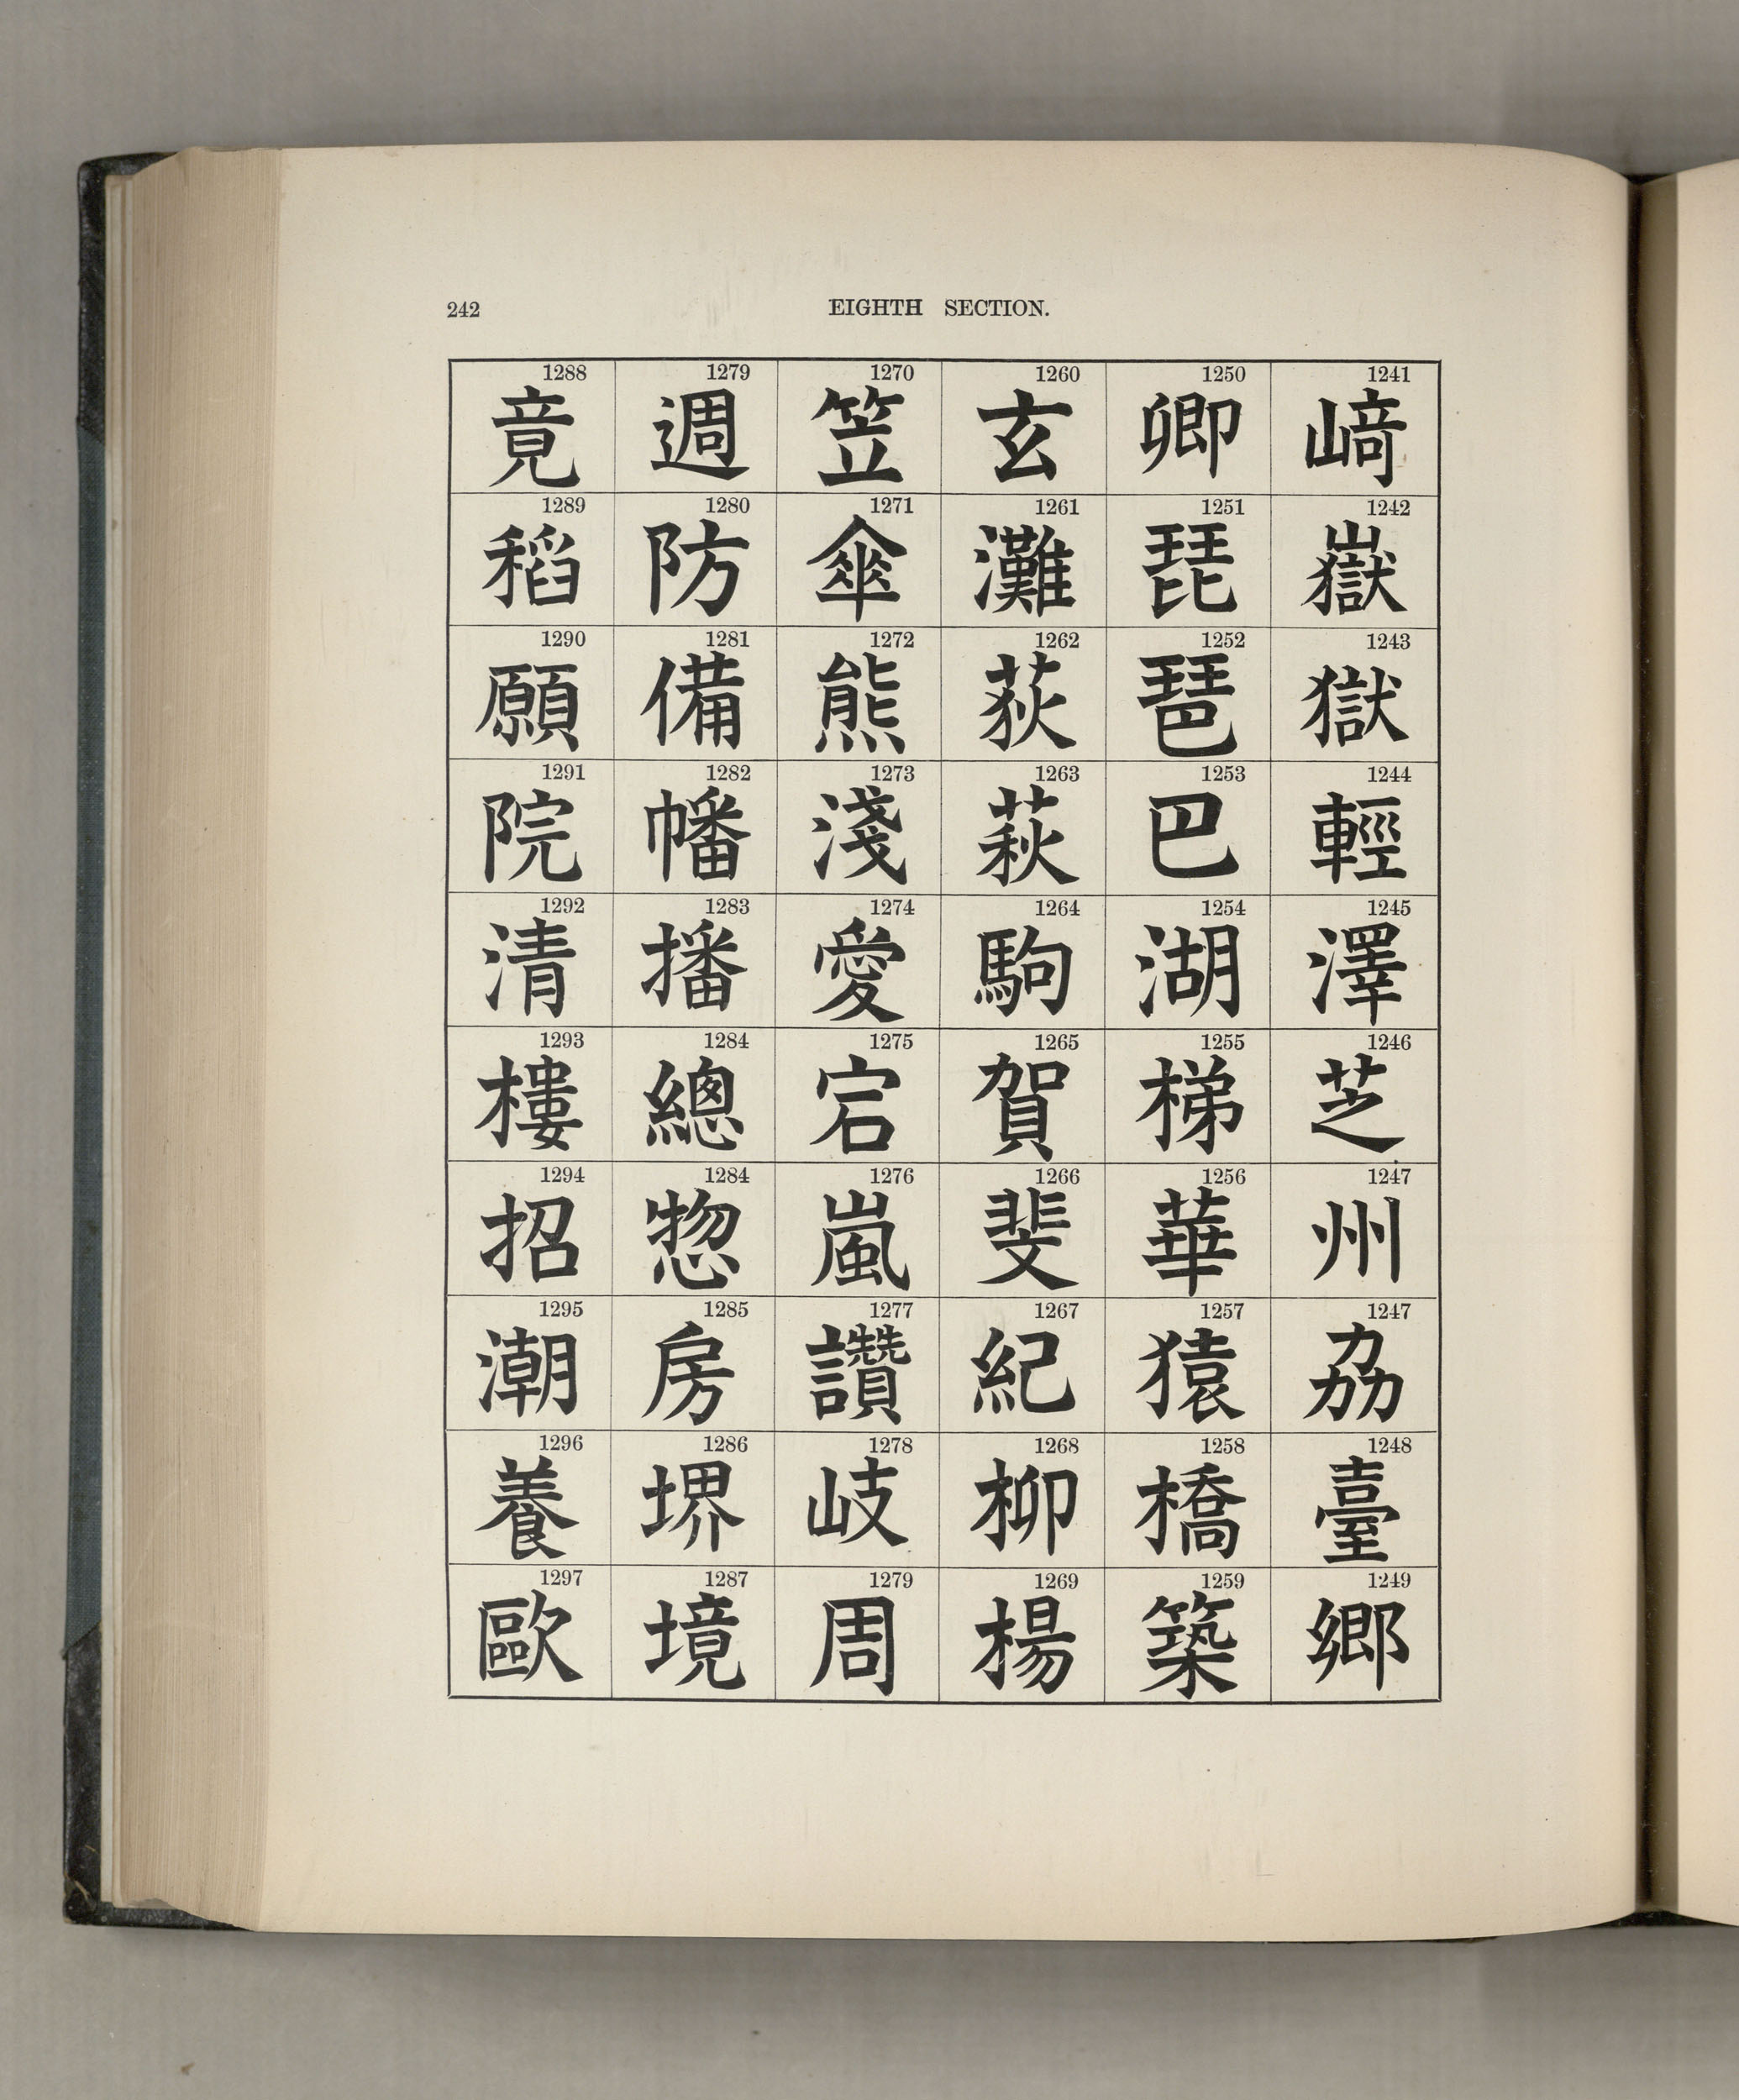 242 EIGHTH SECTION.
1241 崎
1242 嶽
1243 獄
1244 輕
1245 澤
1246 芝
1247 州
1247 刕
1248 臺
1249 鄉
1250 卿
1251 琵
1252 琶
1253 巴
1254 湖
1255 梯
1256 華
1257 猿
1258 橋
1259 築
1260 玄
1261 灘
1262 荻
1263 萩
1264 駒
1265 賀
1266 斐
1267 紀
1268 柳
1269 楊
1270 笠
1271 傘
1272 熊
1273 淺
1274 愛
1275 宕
1276 嵐
1277 讚
1278 岐
1279 周
1279 週
1280 防
1281 備
1282 幡
1283 播
1284 總
1284 惣
1285 房
1286 堺
1287 境
1288 竟
1289 稻
1290 願
1291 院
1292 清
1293 樓
1294 招
1295 潮
1296 養
1297 歐